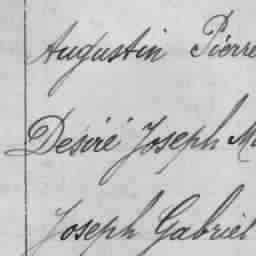 Augustin Pierre
Désiré Joseph
Joseph Gabriel